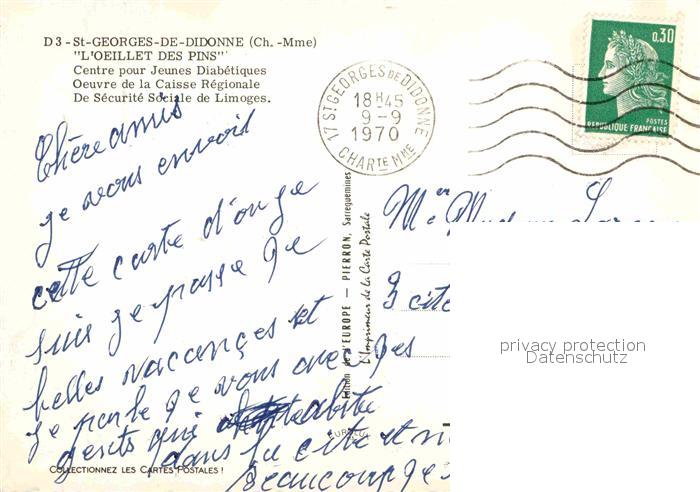 D 3 - St-GEORGES-DE-DIDONNE (Ch. -Mme)
"L'OEILLET DES PINS"
Centre pour Jeunes Diabétiques
Oeuvre de la Caisse Régionale
De Sécurité Sociale de Limoges.
17 ST GEORGES DE DIDONNE
18H45
9-9
1970
CHARTE MME
0,30
POSTES
REPUBLIQUE FRANÇAISE
Chère amis
je vous envoid
cette carte d'ou je
suis je passe de
belles vacances et
je parle de vous avec des
gents qui abite
dans la cite et
beaucoup de
Edition de l'EUROPE — PIERRON, Sarreguemines
L'Imprimeur de la Carte Postale
Mr
3 cite
des
privacy protection
Datenschutz
COLLECTIONNEZ LES CARTES POSTALES !